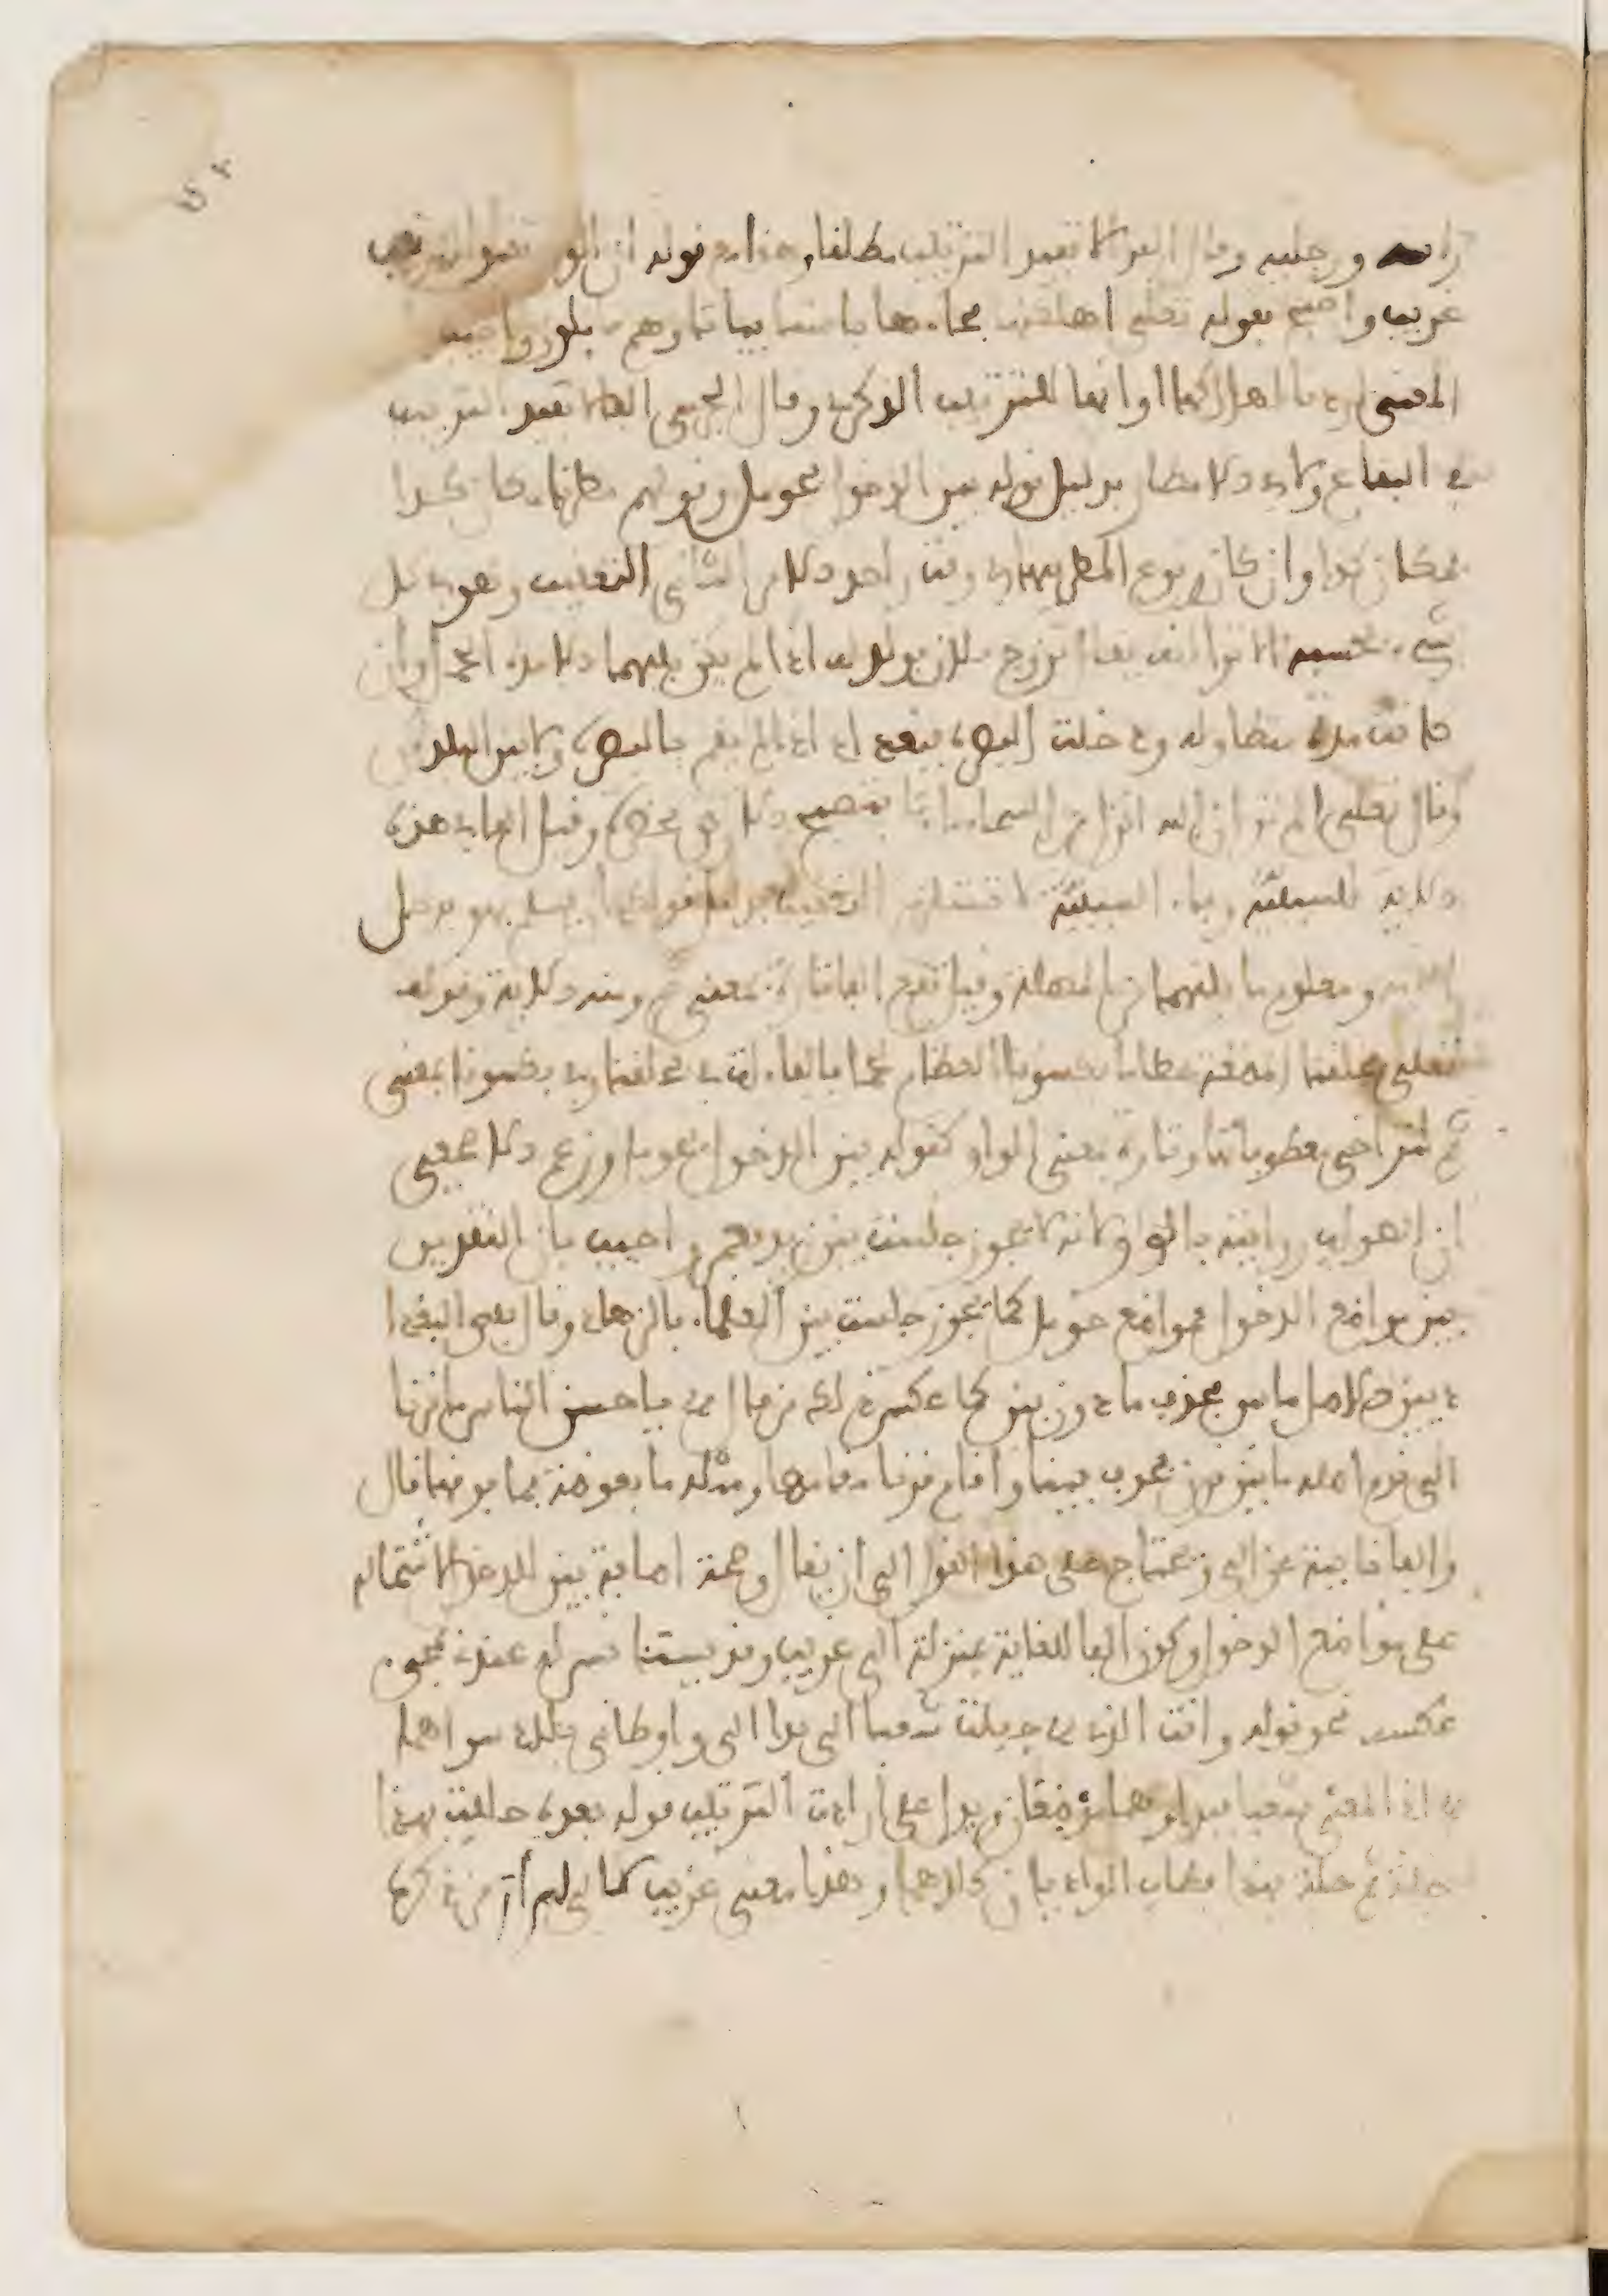 راسه ورجليه وقال الفرا لا تفيد الترتيب مطلقا وهذا مع قوله ان الواو تفيد الترتيب
غريب واحتج بقوله تعلى اهلكناها فجاءها باسنا بياتا او هم قايلون واجيب
المعنى اردنا اهلاكها او انها للترتيب الذكري وقال الجرمي الفا لا تفيد الترتيب
في البقاع ولا في الامطار بدليل قوله بين الدخول فحومل وقولهم مطرنا مكان كذا
فمكان كذا وان كان وقوع المطر بهما في وقت واحد الامر الثاني التعقيب وهو في كل
شيء بحسبه الا ترا انه يقال تزوج فلان فولد له اذا لم يكن بينهما الا مدة الحمل وان
كانت مدة متطاولة ودخلت البصرة فبغداد اذا لم يقم بالبصرة ولا بين البلدين
وقال تعلى الم تر ان الله انزل من السماء ماء فتصبح الارض مخضرة وقيل الفا في هذه
الاية للسببية وفاء السببية لا تستلزم التعقيب بدليل قولك ان يسلم فهو يدخل
الجنة ومعلوم ما بينهما من المهلة وقيل تقع الفا تارة بمعنى ثم ومنه الاية وقوله
تعلى فخلقنا المضغة عظاما فكسونا العظام لحما فالفاء ات في فخلقنا وفي فكسونا بمعنى
ثم لتراخي معطوفاتها وتارة بمعنى الواو كقوله بين الدخول فحومل وزعم الاصمعي
ان الصواب روايته بالواو لانه لا يجوز جلست بين زيد فعمرو واجيب بان التقدير
بين مواضع الدخول فمواضع حومل كما يجوز جلست بين العلماء فالزهاد وقال بعض البغداد
ديين الاصل ما بين فحذف ما دون بين كما عكس ذلك من قال يا احسن الناس ما قرنا
الى قدم اصله ما بين قرن فحذف بين واقام قرنا مقامها ومثله ما بعوضة فما فوقها قال
والفا نايبة عن الى ويحتاج على هذا القول الى ان يقال وصحت اضافة بين للدخول لاشتماله
على مواضع الدخول وكون الفا للغاية بمنزلة الى غريب وقد يستانس له عندي بمجيء
عكسه نحو قوله وانت التي حببت شغبا الى بدا الي واوطاني بلاد سواهما
اذ المعنى شغبا فبدا وهما موضعان ويدل على ارادة الترتيب قوله بعده حللت بهذا
حلة ثم حلة بهذا فطاب الواديان كلاهما وهذا معنى غريب لالى لم ار من ذكره